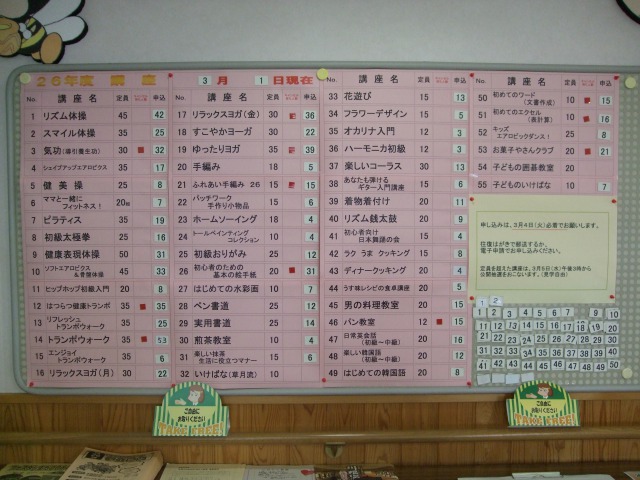 26年度 講座
3月 1日現在
No. 講座名 定員 申込
1 リズム体操 45 42
2 スマイル体操 35 25
3 気功(導引養生功) 30 32
4 シェイプアップエアロビクス 35 17
5 健美操 25 8
6 ママと一緒にフィットネス! 20組 7
7 ピラティス 35 19
8 初級太極拳 25 16
9 健康表現体操 50 31
10 ソフトエアロビクス&骨盤体操 45 33
11 ヒップホップ初級入門 20 8
12 はつらつ健康トランポ 35 35
13 リフレッシュトランポウォーク 35 25
14 トランポウォーク 35 53
15 エンジョイトランポウォーク 35 6
16 リラックスヨガ(月) 30 22
No. 講座名 定員 申込
17 リラックスヨガ(金) 30 36
18 すこやかヨーガ 30 22
19 ゆったりヨガ 35 39
20 手編み 18 5
21 ふれあい手編み 26 15 15
22 パッチワーク手作り小物品 15 6
23 ホームソーイング 18 4
24 トールペインティングコレクション 10 4
25 初級おりがみ 25 12
26 初心者のための基本の絵手紙 20 31
27 はじめての水彩画 10 7
28 ペン書道 25 12
29 実用書道 25 14
30 煎茶教室 10 4
31 楽しい抹茶生活に役立つマナー 15 6
32 いけばな(草月流) 10
No. 講座名 定員 申込
33 花遊び 15 13
34 フラワーデザイン 15 5
35 オカリナ入門 12 3
36 ハーモニカ初級 12 3
37 楽しいコーラス 30 13
38 あなたも弾けるギター入門講座 15 6
39 着物着付け 20 11
40 リズム銭太鼓 20 9
41 初心者向け日本舞踊の会 15 4
42 ラク うま クッキング 15 8
43 ディナークッキング 20 4
44 うす味レシピの食卓講座 20 5
45 男の料理教室 20 15
46 パン教室 12 15
47 日常英会話(初級~中級) 20 16
48 楽しい韓国語(初級~中級) 20 12
49 はじめての韓国語 20 8
No. 講座名 定員 申込
50 初めてのワード(文書作成) 10 15
51 初めてのエクセル(表計算) 10 16
52 キッズエアロビックダンス! 25 8
53 お菓子やさんクラブ 20 21
54 子どもの囲碁教室 20
55 子どものいけばな 10 7
申し込みは、3月4日(火)必着でお願いします。
往復はがきで郵送するか、
電子申請でお申し込みください。
定員を超えた講座は、3月5日(水)午後3時から
公開抽選をおこないます。(見学自由)
ご自由にお取りください
TAKE FREE!
ご自由にお取りください
TAKE FREE!